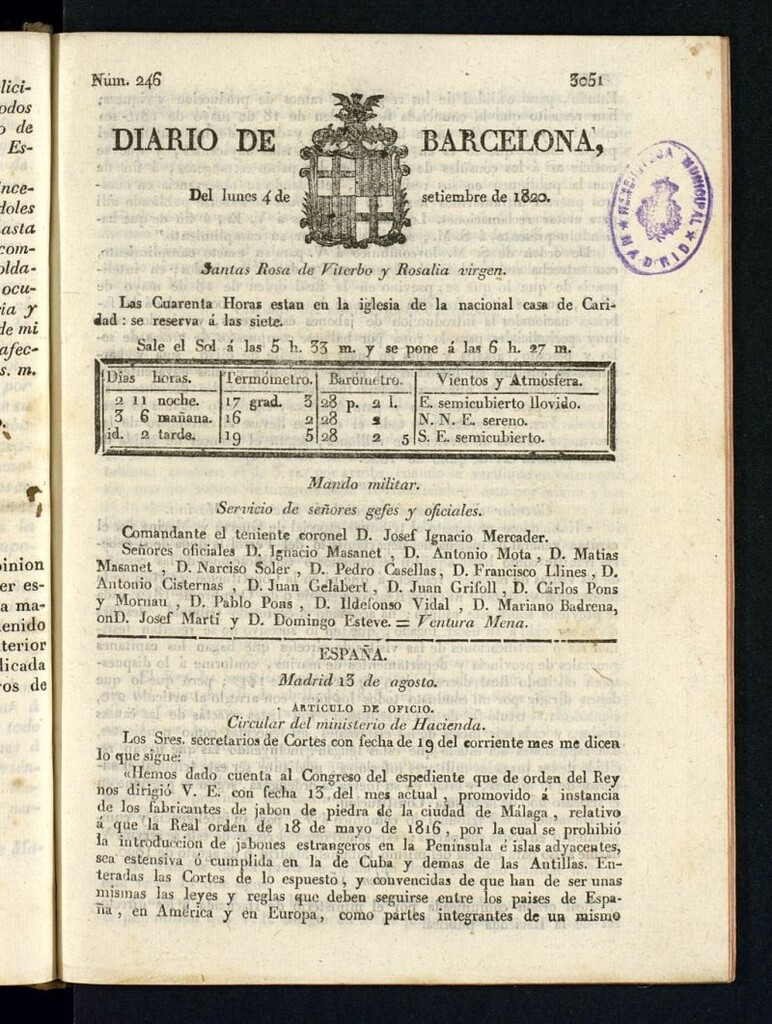 lici-
odos
o de
Es-
ince-
doles
asta
com-
olda-
ocu-
ía y
de mi
afec-
s. m.
inion
er es-
a ma-
enido
terior
licada
ros de
Núm. 246 3051
DIARIO DE BARCELONA,
Del lunes 4 de setiembre de 1820.
HEMEROTECA MUNICIPAL
MADRID
Santas Rosa de Viterbo y Rosalia virgen.
Las Cuarenta Horas estan en la iglesia de la nacional casa de Cari-
dad : se reserva á las siete.
Sale el Sol á las 5 h. 33 m. y se pone á las 6 h. 27 m.
Dias horas. Termómetro. Barómetro. Vientos y Atmósfera.
2 11 noche. 17 grad. 3 28 p. 2 l. E. semicubierto llovido.
3 6 mañana. 16 2 28 2 N. N. E. sereno.
id. 2 tarde. 19 5 28 2 5 S. E. semicubierto.
Mando militar.
Servicio de señores gefes y oficiales.
Comandante el teniente coronel D. Josef Ignacio Mercader.
Señores oficiales D. Ignacio Masanet , D. Antonio Mota , D. Matias
Masanet , D. Narciso Soler , D. Pedro Casellas, D. Francisco Llines , D.
Antonio Cisternas , D. Juan Gelabert , D. Juan Grifoll , D. Cárlos Pons
y Mornau , D. Pablo Pons , D. Ildefonso Vidal , D. Mariano Badrena,
onD. Josef Marti y D. Domingo Esteve. = Ventura Mena.
ESPAÑA.
Madrid 13 de agosto.
ARTÍCULO DE OFICIO.
Circular del ministerio de Hacienda.
Los Sres. secretarios de Cortes con fecha de 19 del corriente mes me dicen
lo que sigue:
«Hemos dado cuenta al Congreso del espediente que de orden del Rey
nos dirigió V. E. con fecha 13 del mes actual , promovido á instancia
de los fabricantes de jabon de piedra de la ciudad de Málaga , relativo
á que la Real orden de 18 de mayo de 1816 , por la cual se prohibió
la introduccion de jabones estrangeros en la Península é islas adyacentes,
sea estensiva ó cumplida en la de Cuba y demas de las Antillas. En-
teradas las Cortes de lo espuesto , y convencidas de que han de ser unas
mismas las leyes y reglas que deben seguirse entre los paises de Espa-
ña , en América y en Europa, como partes integrantes de un mismo